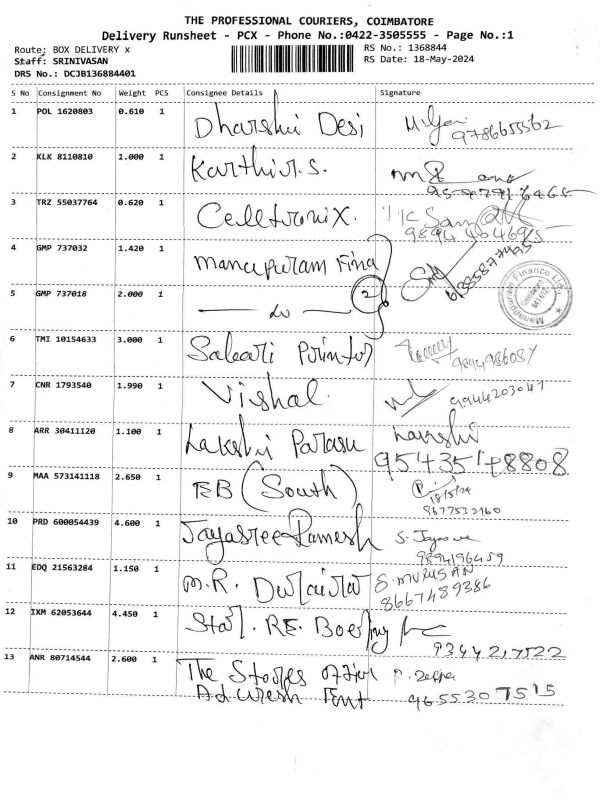 THE PROFESSIONAL COURIERS, COIMBATORE
Delivery Runsheet - PCX - Phone No.:0422-3505555 - Page No.:1
Route: BOX DELIVERY x RS No.: 1368844
Staff: SRINIVASAN RS Date: 18-May-2024
DRS No.: DCJB136884401
S No Consignment No Weight PCS Consignee Details Signature
1 POL 1620803 0.610 1 Dharshui Desi
9786655562
2 KLK 8110810 1.000 1 Karthi S.
3 TRZ 55037764 0.620 1 Celltronix.
4 GMP 737032 1.420 1 Manapuram Fina
Manappuram Finance Ltd.
5 GMP 737018 2.000 1 2
6 TMI 10154633 3.000 1 Printor
7 CNR 1793540 1.990 1 Vishal
9944203047
8 ARR 30411120 1.100 1 Lakshi Parasu
9543548808
9 MAA 573141118 2.650 1 EB (South)
18/5/24
9677532160
10 PRD 600054439 4.600 1 Jayasree Ramesh
9894196459
11 EDQ 21563284 1.150 1 M.R. S. MURUSAN
8667489386
12 IXM 62053644 4.450 1 RE.
9344217522
13 ANR 80714544 2.600 1 The Stores
9655307515